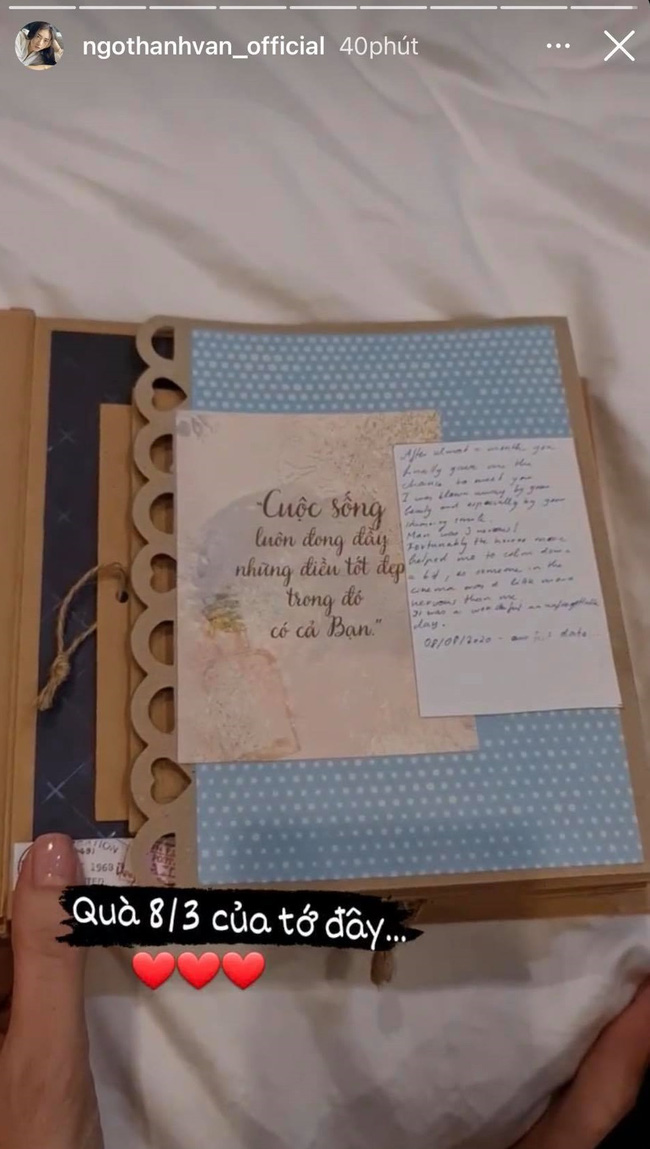 ngothanhvan_official 40phút
"Cuộc sống
luôn đong đầy
những điều tốt đẹp
trong đó
có cả Bạn."
After almost a month you
finally gave me the
chance to meet you
I was blown away by your
beauty and especially by your
smile
Man was I nervous!
Fortunately the
helped me to calm down
a bit, as someone in the
cinema was a like more
nervous than me
It was a wonderful unforgettable
day.
08/08/2020 - date
1969
Quà 8/3 của tớ đây...